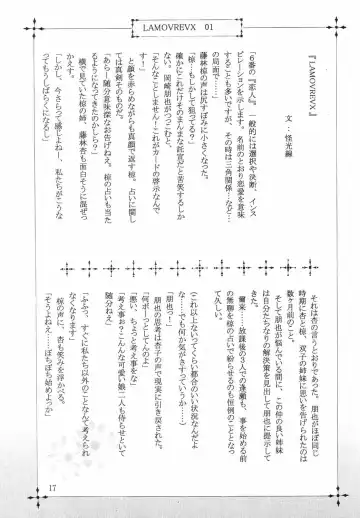 LAMOVREVX 01
『LAMOVREVX』
文：怪光線
「6番の『恋人』。一般的には選択や決断、インス
ピレーションを示します。名前のとおり恋愛を意味
することも多いですが、その時は三角関係…など…
の局面で……」
藤林椋の声は尻すぼみに小さくなった。
「椋…もしかして狙ってる？」
確かにこれだけそのまんまな託宣だと苦笑するしか
ない。岡崎朋也がつっこむと、
「そんなことしません！これがカードの啓示なんで
す！」
と顔を赤らめながらも真顔で返す椋。占いに関し
ては真剣そのものだ。
「あらー随分意味深なお告げねえ。椋の占いも当た
るようになってきたのかしら？」
横で見ていた椋の姉、藤林杏も面白そうに混ぜっ
かえす。
「しかし、今さらって感じよねー。私たちがこうな
ってもうしばらくになるし」
それは杏の言うとおりであった。朋也がほぼ同じ
時期に杏と椋、双子の姉妹に思いを告げられたのは
数ヶ月前のこと。
そして朋也が悩んでいる間に、この仲の良い姉妹
は自分たちなりの解決策を見出して朋也に提示して
きた。
爾来……放課後の3人での逢瀬も、事を始める前
の無聊を椋の占いで紛らせるのも恒例のこととなっ
て久しい。
（これ以上ないってくらい都合のいい状況なんだよ
な…でも何か気がさすっていうか……）
「朋也っ！」
朋也の思考は杏の声で現実に引き戻された。
「何ボーっとしてんのよ」
「悪い、ちょっと考え事をな」
「考え事ぉ？こんな可愛い娘二人も侍らせといて
随分ねえ」
「ふふっ、すぐに私たち以外のことなんて考えられ
なくなります」
椋の声に、杏も笑みを浮かべる。
「そうよねえ……ぼちぼち始めよっか」
17